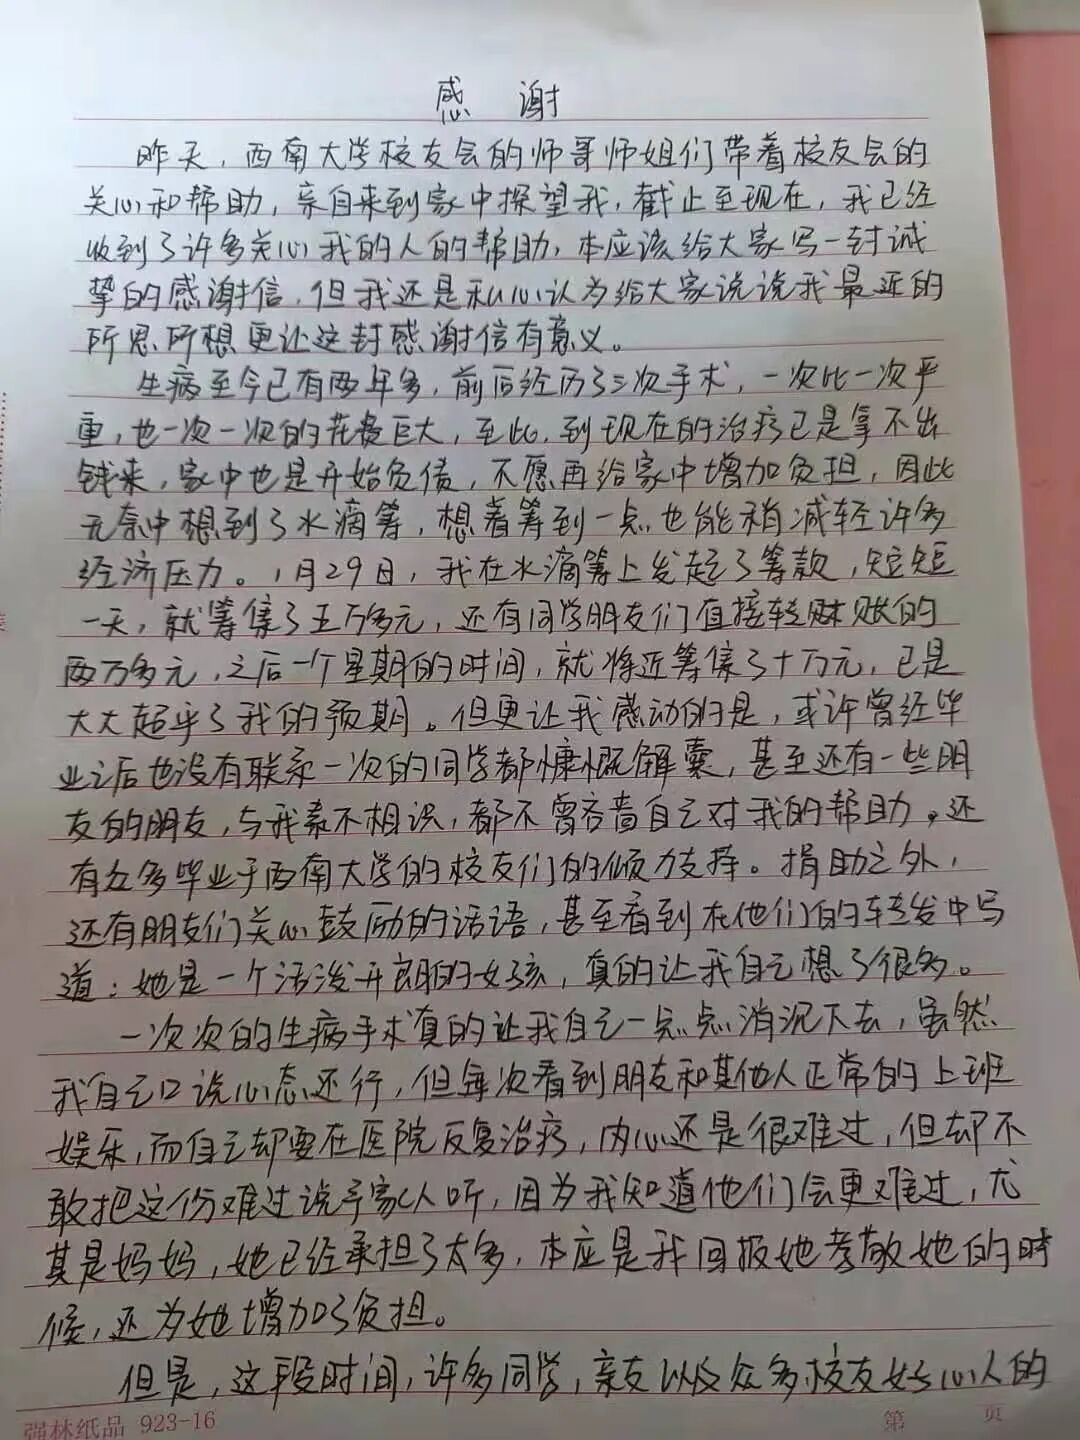 感 谢
昨天，西南大学校友会的师哥师姐们带着校友会的
关心和帮助，亲自来到家中探望我，截止至现在，我已经
收到了许多关心我的人的帮助，本应该给大家写一封诚
挚的感谢信，但我还是私心认为给大家说说我最近的
所思所想更让这封感谢信有意义。
生病至今已有两年多，前后经历了三次手术，一次比一次严
重，也一次一次的花费巨大，至此，到现在的治疗已是拿不出
钱来，家中也是开始负债，不愿再给家中增加负担，因此
无奈中想到了水滴筹，想着筹到一点也能稍减轻许多
经济压力。1月29日，我在水滴筹上发起了筹款，短短
一天，就筹集了五万多元，还有同学朋友们直接转账的
两万多元，之后一个星期的时间，就将近筹集了十万元，已是
大大超乎了我的预期。但更让我感动的是，或许曾经毕
业之后也没有联系一次的同学都慷慨解囊，甚至还有一些朋
友的朋友，与我素不相识，都不曾吝啬自己对我的帮助。还
有众多毕业于西南大学的校友们的倾力支持。捐助之外，
还有朋友们关心鼓励的话语，甚至看到在他们的转发中写
道：她是一个活泼开朗的女孩，真的让我自己想了很多。
一次次的生病手术真的让我自己一点点消沉下去，虽然
我自己口说心态还行，但每次看到朋友和其他人正常的上班
娱乐，而自己却要在医院反复治疗，内心还是很难过，但却不
敢把这份难过说予家人听，因为我知道他们会更难过，尤
其是妈妈，她已经承担了太多，本应是我回报她孝敬她的时
候，还为她增加了负担。
但是，这段时间，许多同学，亲友以及众多校友好心人的
强林纸品 923-16
第 页